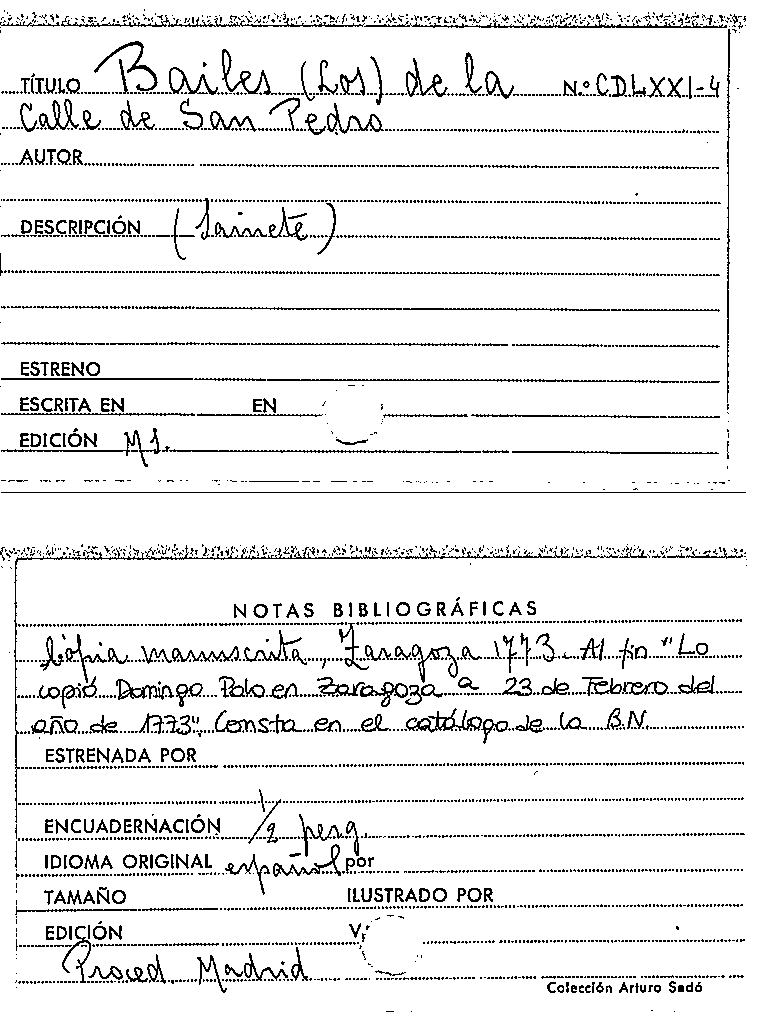 TÍTULO Bailes (Los) de la N.º CDLXXI-4
Calle de San Pedro
AUTOR
DESCRIPCIÓN (Sainete)
ESTRENO
ESCRITA EN EN
EDICIÓN MS.
NOTAS BIBLIOGRÁFICAS
Cópia manuscrita, Zaragoza 1773. Al fin "Lo
copió Domingo Polo en Zaragoza a 23 de Febrero del
año de 1773". Consta en el catálogo de la B.N.
ESTRENADA POR
ENCUADERNACIÓN 1/2 perg.
IDIOMA ORIGINAL español por
TAMAÑO ILUSTRADO POR
EDICIÓN
Proced. Madrid
Colección Arturo Sedó